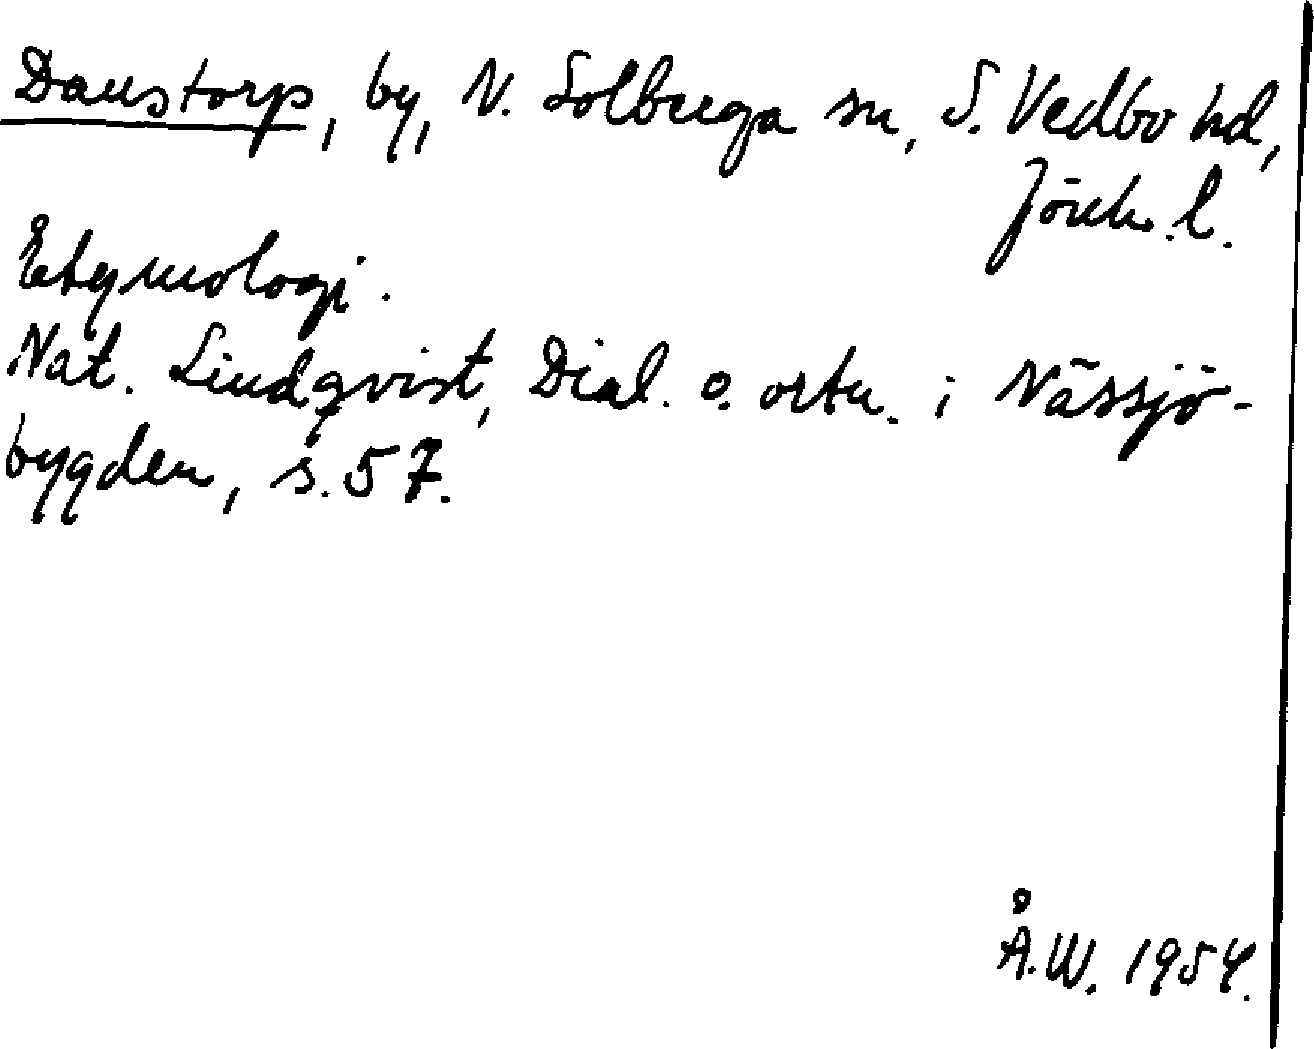 Danstorp, by, N. Solberga sn, S. Vedbo hd,
Jönk. l.
Etymologi.
Nat. Lindqvist, Dial. o. ortn. i Nässjö-
bygden, s. 57.
Å.W. 1954.